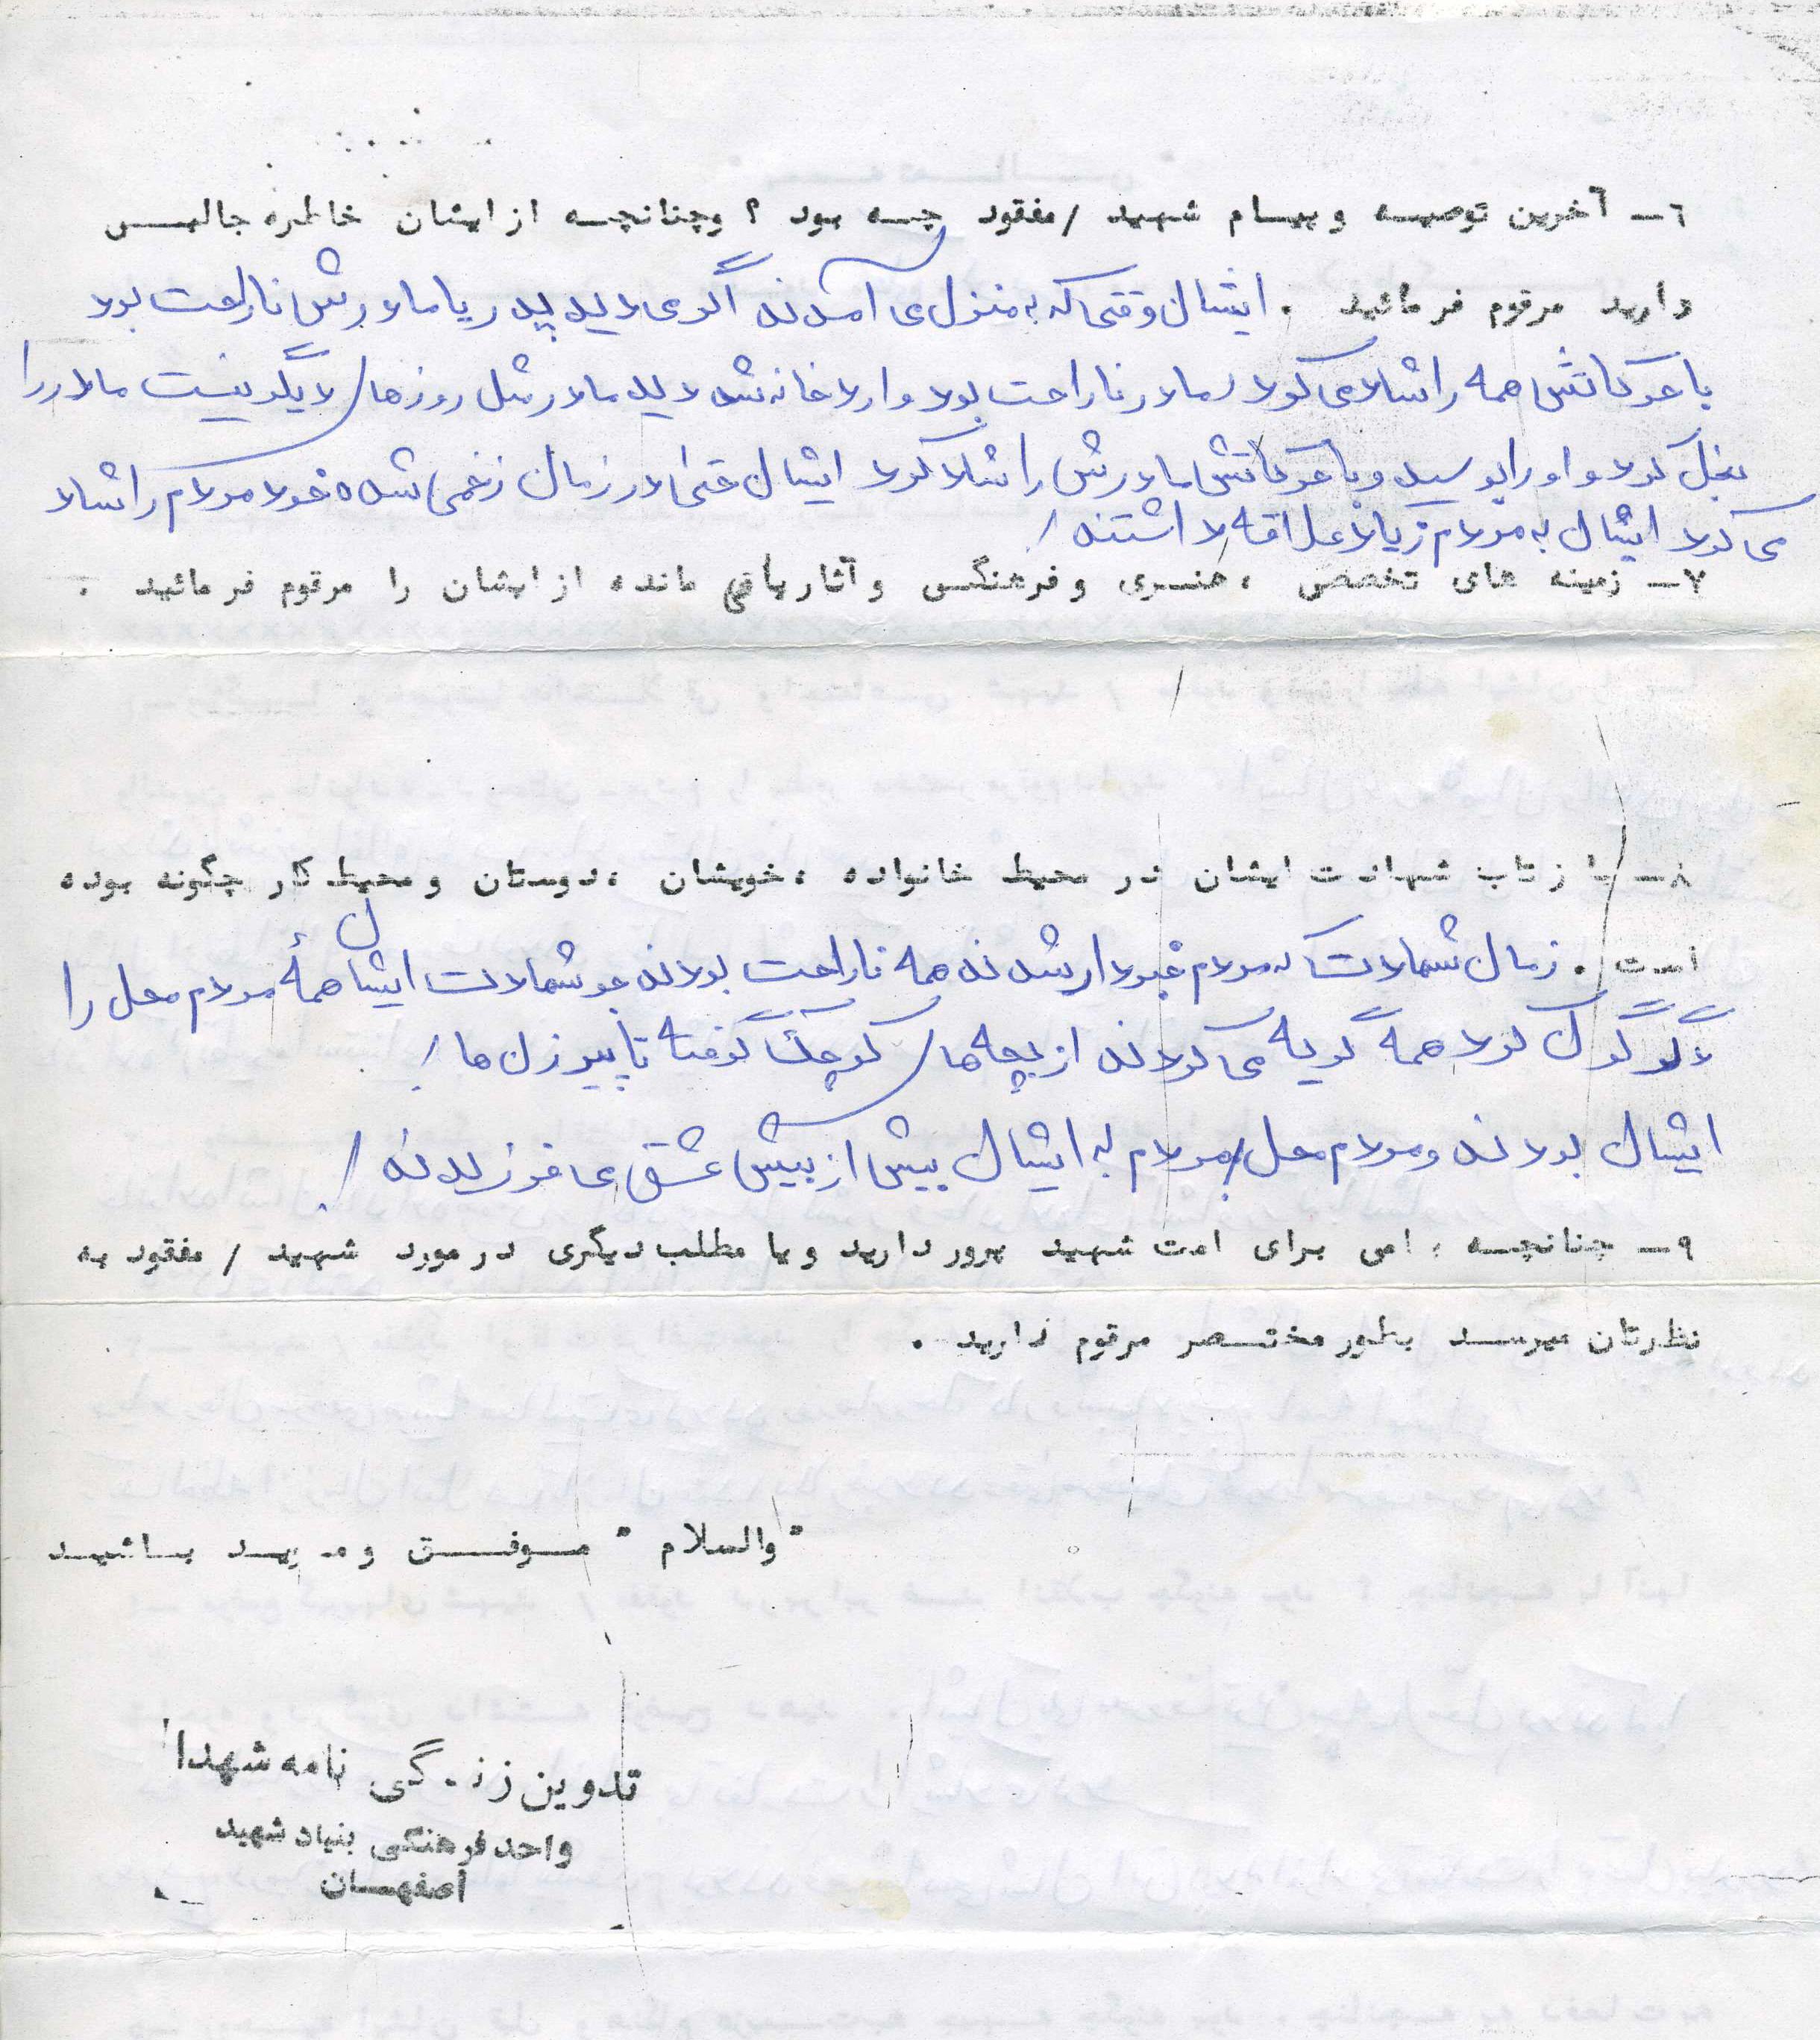 ٦- آخرین توصیه و پیام شهید / مفقود چه بود ؟ وچنانچه از ایشان خاطره جالبی
دارید مرقوم فرمائید . ایشان وقتی که به منزل می آمدند اگر می دید پدر یا مادرش ناراحت بود
با حرکاتش همه را شاد می کرد مادر ناراحت بود وارد خانه شد دید مادر مثل روزهای دیگر نیست مادر را
بغل کرد و او را بوسید و با حرکاتش مادرش را شاد کرد ایشان حتی در زمان زخمی شده خود مردم را شاد
می کرد ایشان به مردم زیاد علاقه داشتند /
٧- زمینه های تخصصی ، هنری و فرهنگی و آثار باقی مانده از ایشان را مرقوم فرمائید .
٨- بازتاب شهادت ایشان در محیط خانواده ، خویشان ، دوستان و محیط کار چگونه بوده
است . زمان شهادت که مردم خبردار شدند همه ناراحت بودند خبر شهادت ایشان همهٔ مردم محل را
دگرگون کرد همه گریه می کردند از بچه های کوچک گرفته تا پیرزن ها /
ایشان بودند و مردم محل مردم به ایشان بیش از بیش عشق می ورزیدند /
٩- چنانچه امی برای امت شهید پرور دارید و یا مطلب دیگری در مورد شهید / مفقود به
نظرتان میرسد بطور مختصر مرقوم دارید .
"والسلام " موفق و م ید باشید
تدوین زندگی نامه شهدا
واحد فرهنگی بنیاد شهید
اصفهان